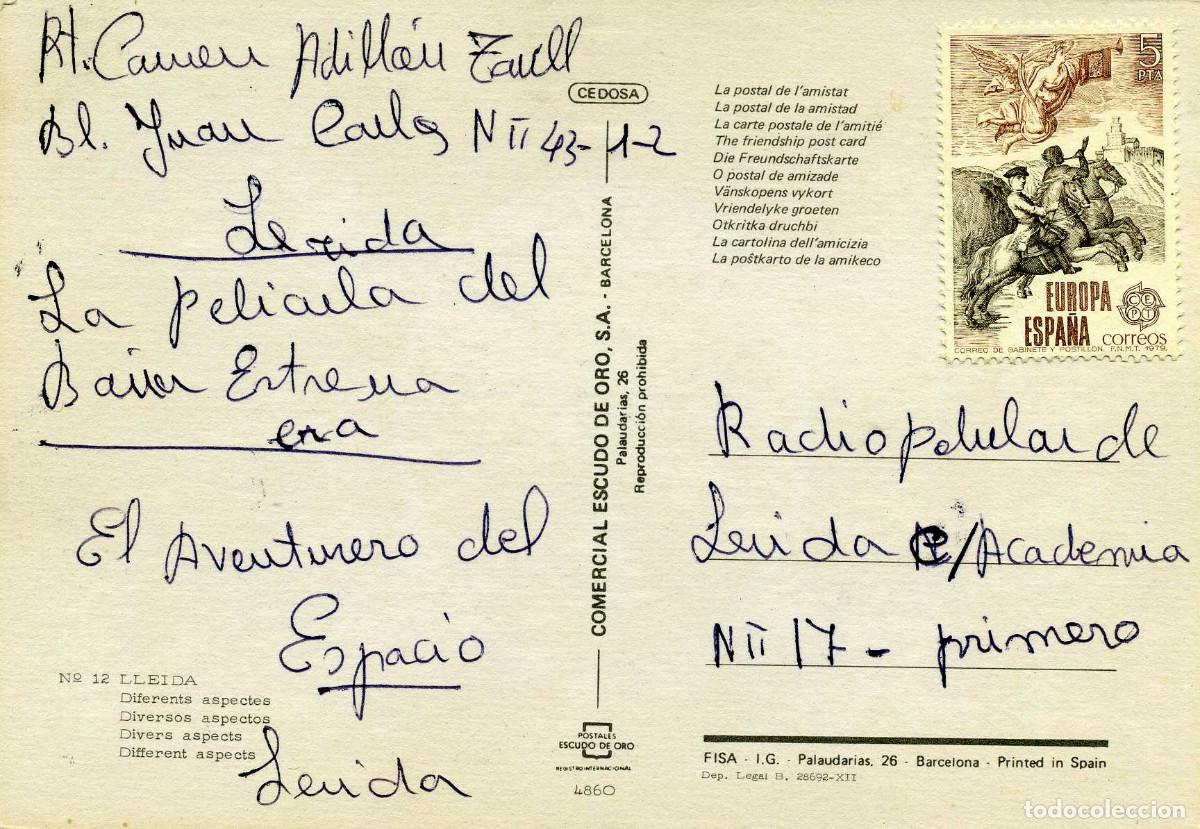 Rt. Carmen Adillón
Bl. Juan Carlos Nº 43-1-2
Lerida
La pelicula del
Baixa Extrema
era
El Aventurero del
Espacio
Lerida
Nº 12 LLEIDA
Diferents aspectes
Diversos aspectos
Divers aspects
Different aspects
CEDOSA
COMERCIAL ESCUDO DE ORO, S.A. - BARCELONA
Palaudarias, 26
Reproducción prohibida
POSTALES
ESCUDO DE ORO
REGISTRO INTERNACIONAL
4860
La postal de l'amistat
La postal de la amistad
La carte postale de l'amitié
The friendship post card
Die Freundschaftskarte
O postal de amizade
Vänskopens vykort
Vriendelyke groeten
Otkritka druchbi
La cartolina dell'amicizia
La poŝtkarto de la amikeco
5
PTA
EUROPA
ESPAÑA
CEPT
correos
CORREO DE GABINETE Y POSTILLON. F.N.M.T. 1979.
Radio popular de
Lerida C/Academia
Nº 17 - primero
FISA - I.G. - Palaudarias, 26 - Barcelona - Printed in Spain
Dep. Legal B. 28692-XII
todocoleccion